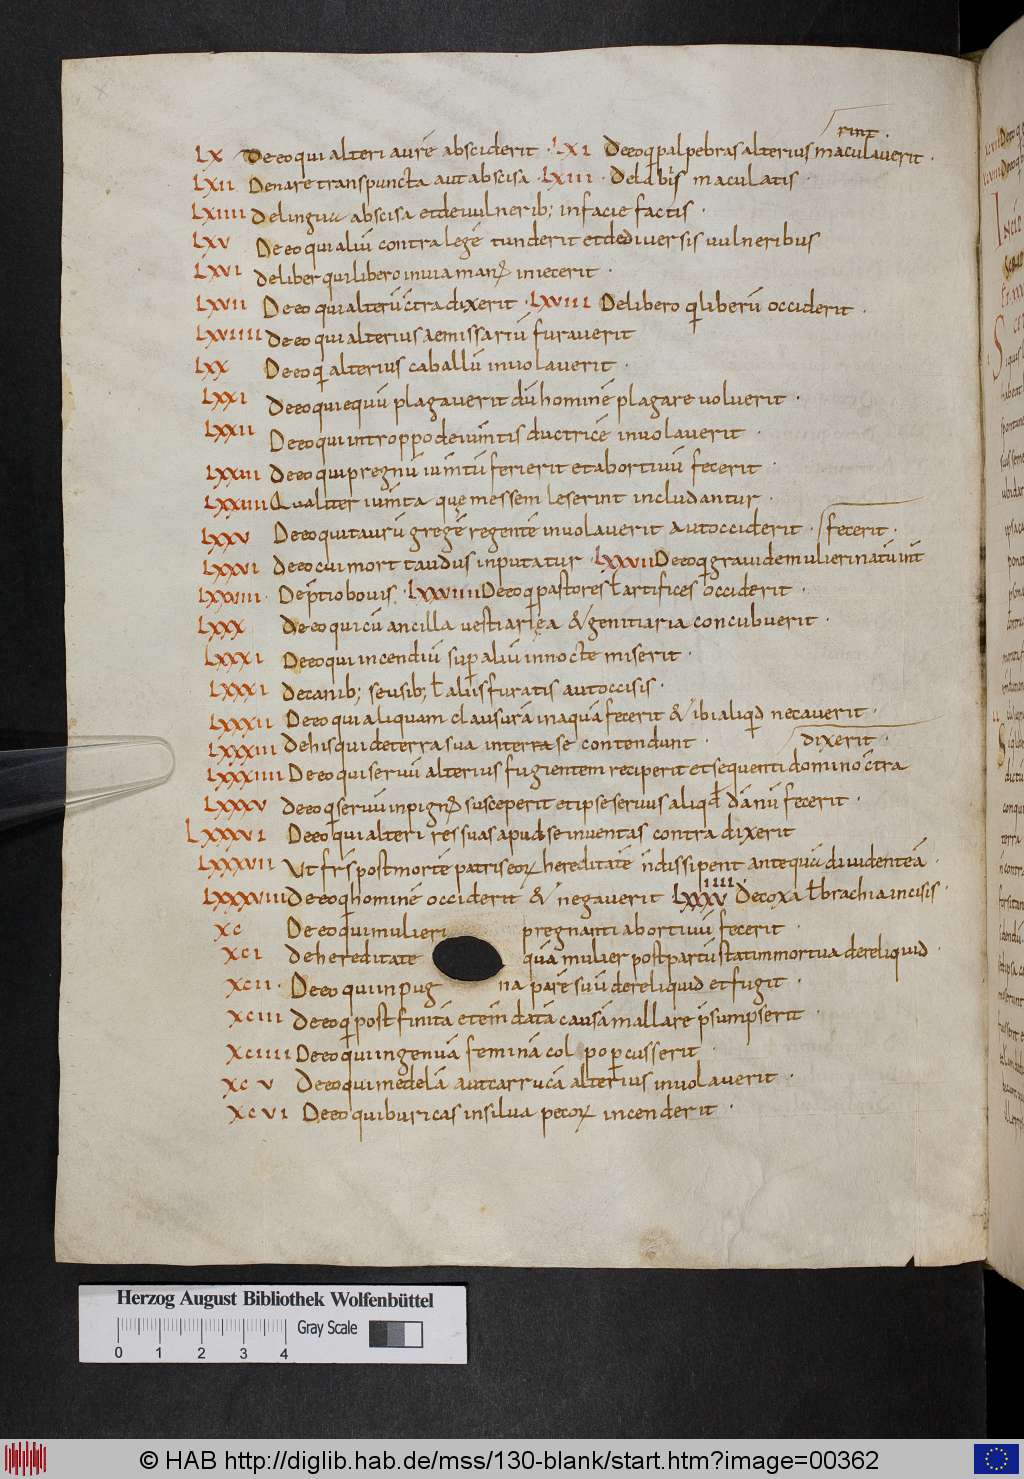 rint·
LX De eo qui alteri aurē absciderit · LXI De eo q palpebras alterius maculaverit ·
LXII De nare transpuncta aut abscisa · LXIII · De labiis maculatis ·
LXIIII De lingua abscisa et de vulnerib; in facie factis ·
LXV De eo qui aliū contra legē tunderit et de diversis vulneribus
LXVI De liber qui libero in via man; iniecerit ·
LXVII De eo qui alterū ctradixerit · LXVIII De libero q liberū occiderit ·
LXVIIII De eo qui alterius aemissariū furaverit
LXX De eo q alterius caballū involaverit ·
LXXI De eo qui equū plagaverit dū hominē plagare voluerit ·
LXXII De eo qui in troppo de iumtis ductricē involaverit ·
LXXIII De eo qui pregnū iumtū ferierit et abortivū fecerit ·
LXXIIII Qualiter iumta quę messem leserint includantur ·
LXXV De eo qui taurū gregē regentē involaverit aut occiderit · fecerit ·
LXXVI De eo cui mort taudus inputatur · LXXVII De eo q gravide mulieri natū int
LXXVIII · De ptio bovis · LXXVIIII De eo q pastores ł artifices occiderit ·
LXXX De eo qui cū ancilla vestiariea & genitiaria concubuerit ·
LXXXI De eo qui incendiū sup aliū in nocte miserit ·
LXXXI De canib; seusib; ł aliis furatis aut occisis ·
LXXXII De eo qui aliquam clausurā in aqua fecerit & ibi aliqd necaverit ·
LXXXIII De his qui de terra sua inter se contendunt · dixerit ·
LXXXIIII De eo qui servū alterius fugientem reciperit et sequenti domino ctra
LXXXV De eo q servū in pign susceperit et ipse servus aliqd dānū fecerit ·
LXXXVI De eo qui alteri res suas apud se inventas contradixerit
LXXXVII Ut frs post mortē patris eor hereditatē n dissipent antequā dividentea ·
IIII
LXXXVIII De eo q hominē occiderit & negaverit LXXXV De coxa ł brachia incisis ·
XC De eo qui mulieri pregnanti abortivū fecerit ·
XCI De hereditate quā mulier post partū statim mortua dereliquid ·
XCII · De eo qui in pug na parē suū dereliquid et fugit ·
XCIII De eo q post finitā et emdatā causā mallare psumpserit ·
XCIIII De eo qui ingenuā feminā col po pcusserit ·
XCV De eo qui medelā aut carrucā alterius involaverit ·
XCVI De eo qui buricas in silva pecor incenderit ·
Herzog August Bibliothek Wolfenbüttel
Gray Scale
0 1 2 3 4
© HAB http://diglib.hab.de/mss/130-blank/start.htm?image=00362